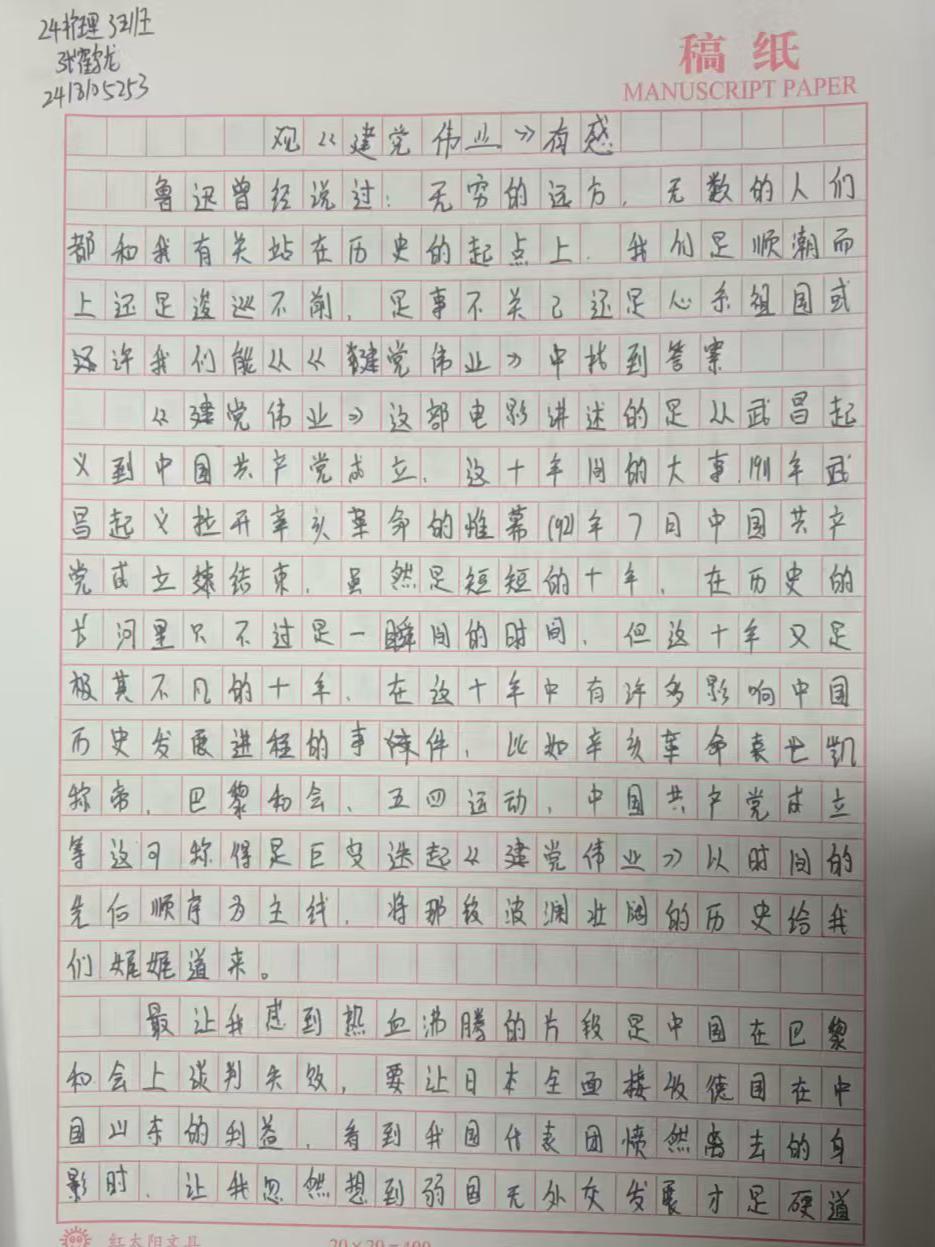 24护理3班
张鹤龙
2413105253
稿纸
MANUSCRIPT PAPER
观《建党伟业》有感
鲁迅曾经说过:无穷的远方,无数的人们
都和我有关站在历史的起点上,我们是顺潮而
上还是逡巡不前,是事不关己还是心系祖国或
许我们能从《建党伟业》中找到答案
《建党伟业》这部电影讲述的是从武昌起
义到中国共产党成立,这十年间的大事,1911年武
昌起义拉开辛亥革命的帷幕1921年7月中国共产
党成立结束,虽然是短短的十年,在历史的
长河里只不过是一瞬间的时间,但这十年又是
极其不凡的十年,在这十年中有许多影响中国
历史发展进程的事件,比如辛亥革命袁世凯
称帝,巴黎和会、五四运动,中国共产党成立
等这可称得是巨变迭起《建党伟业》以时间的
先后顺序为主线,将那段波澜壮阔的历史给我
们娓娓道来。
最让我感到热血沸腾的片段是中国在巴黎
和会上谈判失败,要让日本全面接收德国在中
国山东的利益,看到我国代表团愤然离去的身
影时,让我忽然想到弱国无外交发展才是硬道
红太阳文具
20×20=400